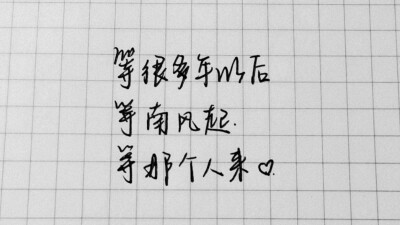 等很多年以后
等南风起.
等那个人来♡.